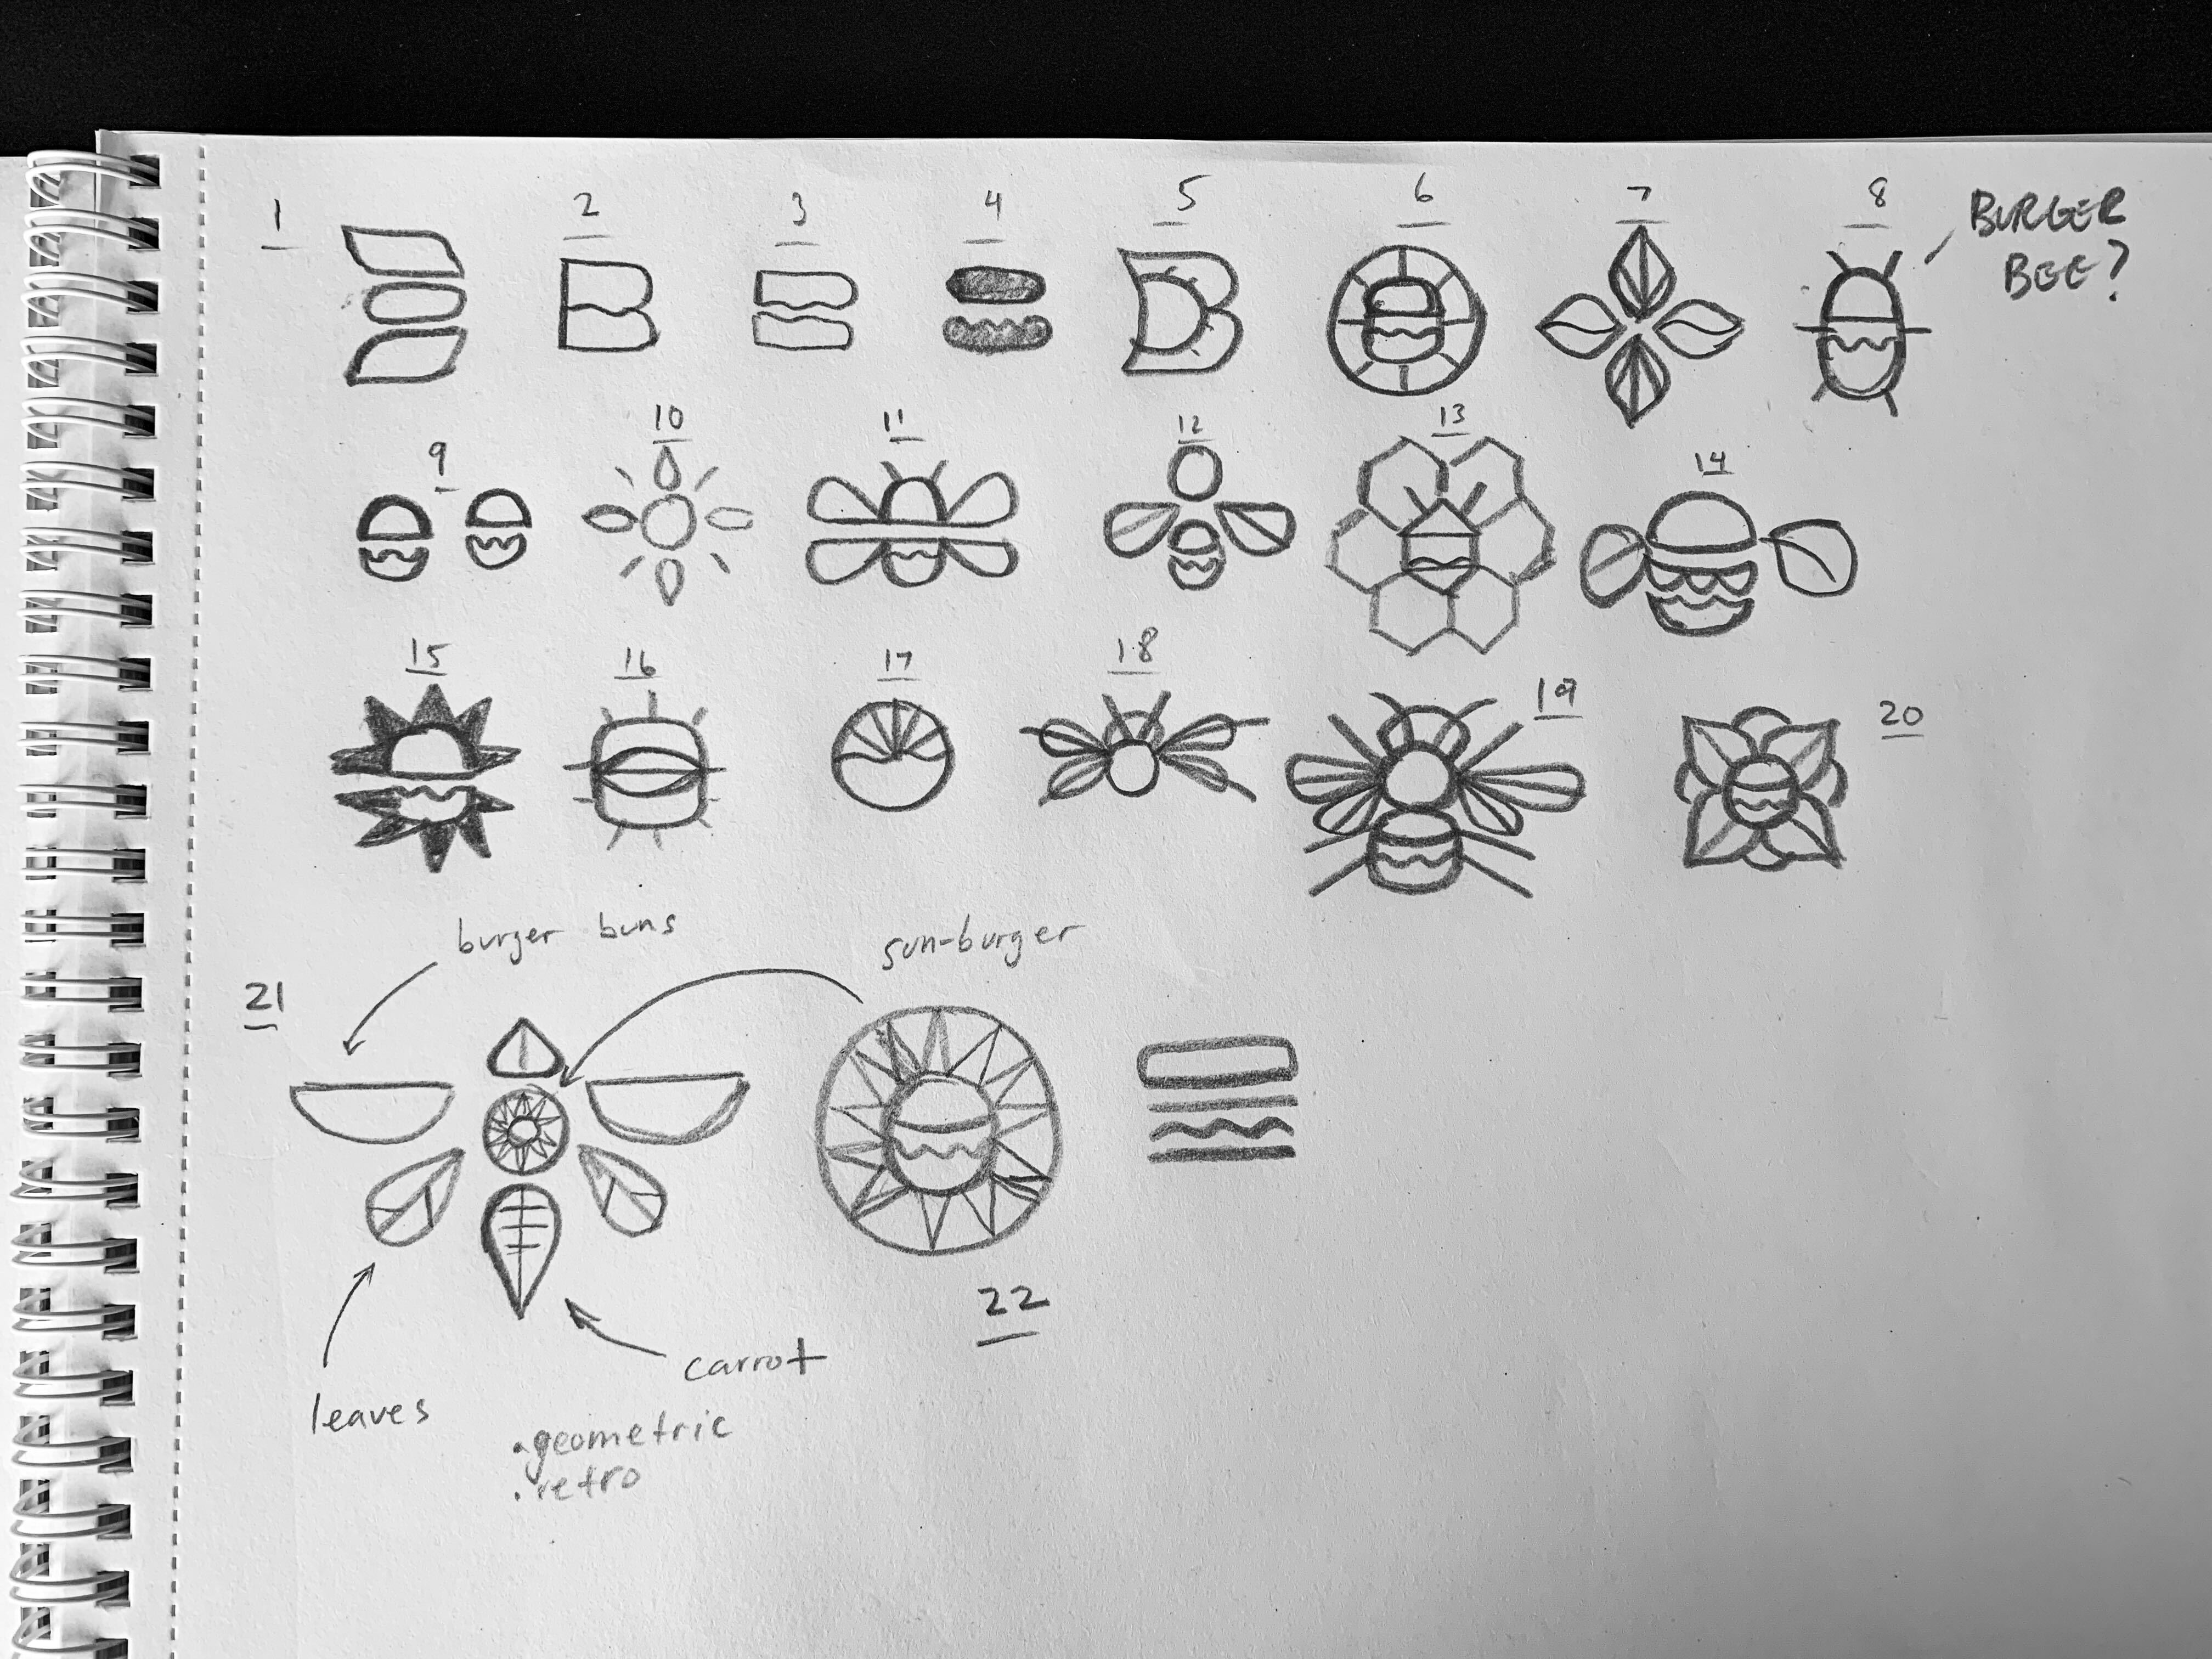 1
2
3
4
5
6
7
8
BURGER
BEE?
9
10
11
12
13
14
15
16
17
18
19
20
burger buns
sun-burger
21
22
carrot
leaves
• geometric
• retro